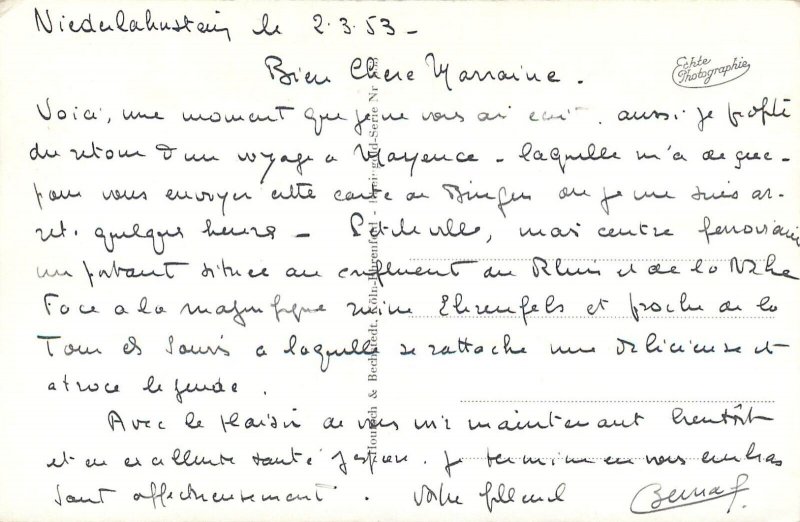 Niederlahnstein le 2.3.53 -
Bien Chere Marraine.
Echte
Photographie
Voici, une moment que je ne vous ai ecrit. aussi je profite
du retour d'un voyage a Mayence - laquelle m'a
pour vous envoyer cette carte de Bingen ou je me suis ar-
ret. quelques heures - Petite ville, mais centre ferroviaire
important située au confluent du Rhin et de la Nahe
Face a la magnifique ruine Ehrenfels et proche de la
Tour des Souris a laquelle se rattache une delicieuse et
atroce legende.
Avec le plaisir de vous maintenant bientôt
et en excellente santé j'espère. je termine en vous embras
sant affectueusement. Votre filleul
Bernard
Hourich & Bechstedt, Köln-Ehrenfeld - gold-Serie Nr